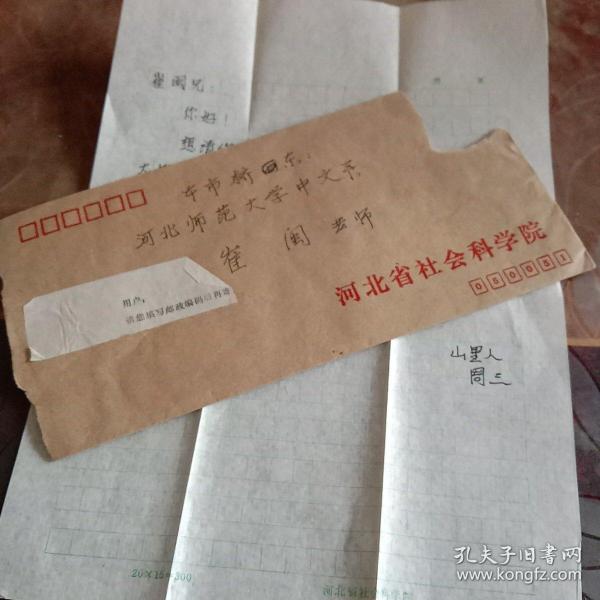 崔闽兄:
你好!
想请
本市桥东:
河北师范大学中文系
崔 闽 老师
河北省社会科学院
050051
用户:
请您填写邮政编码后再寄
山里人
周三
20×15=300
孔夫子旧书网
www.kongfz.com